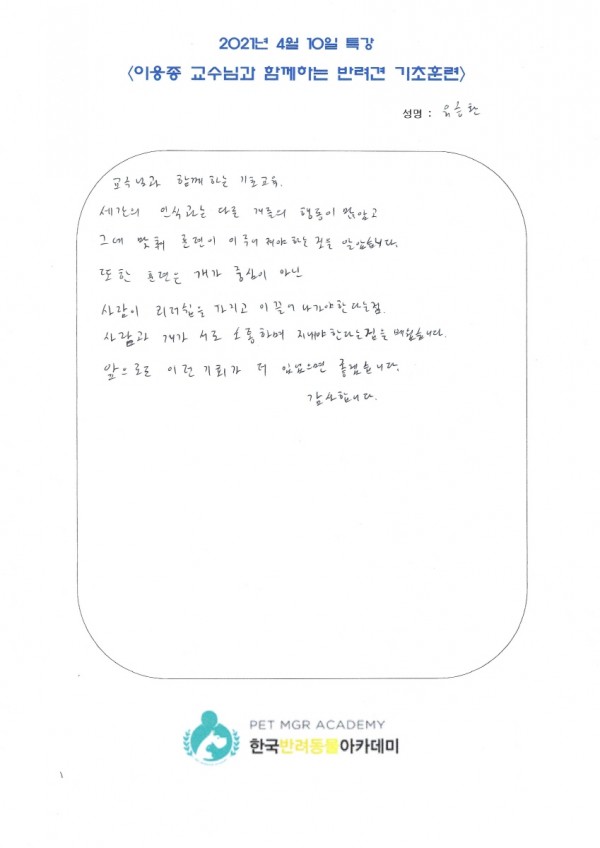 2021년 4월 10일 특강
<이웅종 교수님과 함께하는 반려견 기초훈련>
성명 : 유승환
교수님과 함께 하는 기초교육.
세간의 인식과는 다를 개들의 행동이 많았고
그에 맞춰 훈련이 이루어 져야 하는 것을 알았습니다.
또한 훈련은 개가 중심이 아닌
사람이 리더쉽을 가지고 이끌어 나가야한다는점.
사람과 개가 서로 소통하며 지내야한다는점을 배웠습니다.
앞으로도 이런 기회가 더 있었으면 좋겠습니다.
감사합니다.
PET MGR ACADEMY
한국반려동물아카데미